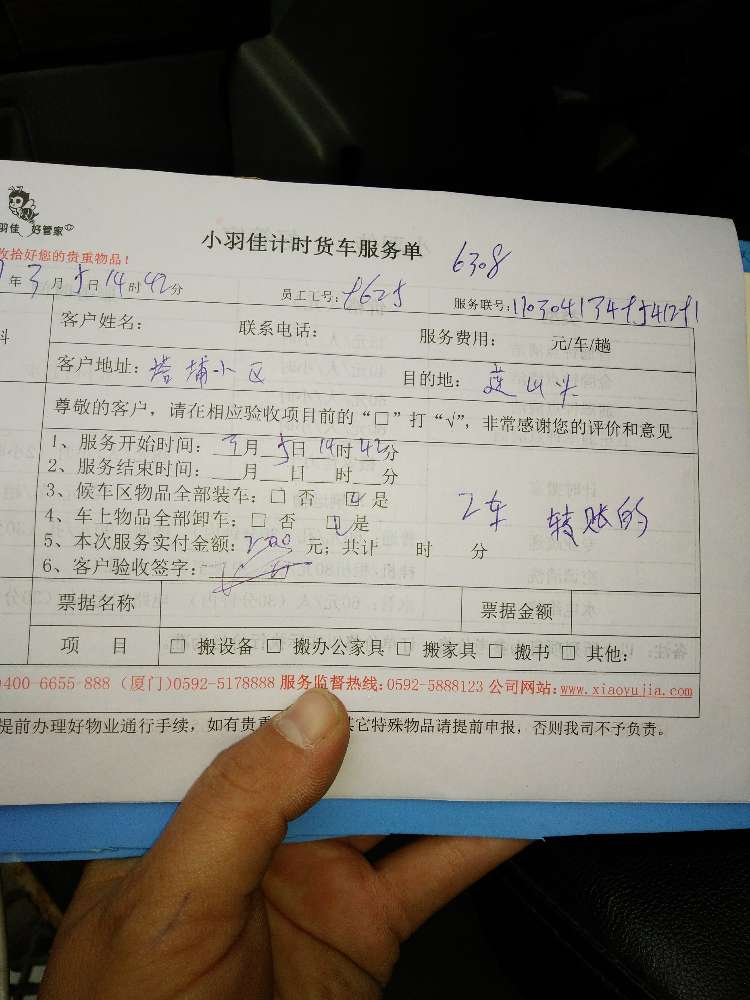 羽佳 好管家
小羽佳计时货车服务单
6308
收拾好您的贵重物品！
年3月5日14时42分
员工工号：
服务联号：
客户姓名： 联系电话： 服务费用： 元/车/趟
客户地址：塔埔小区 目的地：莲山头
尊敬的客户，请在相应验收项目前的“□”打“√”，非常感谢您的评价和意见
1、服务开始时间：3月5日14时42分
2、服务结束时间：___月___日___时___分
3、候车区物品全部装车：□ 否 ☑ 是
4、车上物品全部卸车：□ 否 ☑ 是
2车 转账的
5、本次服务实付金额：200 元；共计 时 分
6、客户验收签字：
票据名称 票据金额
项 目 □ 搬设备 □ 搬办公家具 □ 搬家具 □ 搬书 □ 其他：
400-6655-888 (厦门)0592-5178888 服务监督热线：0592-5888123 公司网站：www.xiaoyujia.com
提前办理好物业通行手续，如有贵重 其它特殊物品请提前申报，否则我司不予负责。